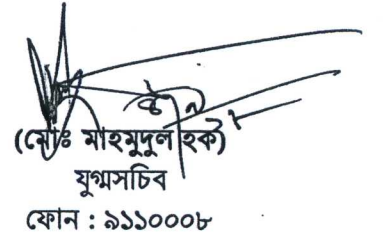 (মোঃ মাহমুদুল হক)
যুগ্মসচিব
ফোন : ৯১১০০০৮